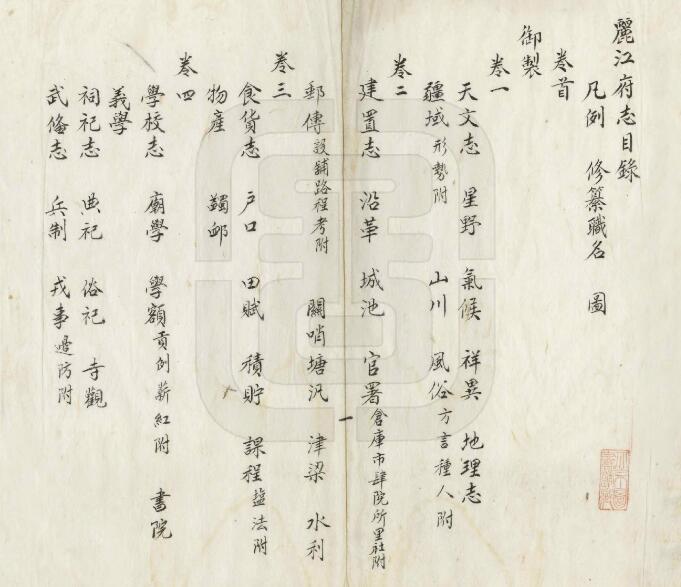 麗江府志目錄
卷首
凡例 修纂職名 圖
御製
卷一
天文志 星野 氣候 祥異 地理志
疆域形勢附 山川 風俗方言種人附
卷二
建置志 沿革 城池 官署倉庫市肆院所里社附
郵傳設鋪路程考附 關哨塘汛 津梁 水利
卷三
食貨志 户口 田賦 積貯 課程盐法附
物產 蠲卹
卷四
學校志 廟學 學額貢例薪紅附 書院
義學
祠祀志 典祀 俗祀 寺觀
武俻志 兵制 戎事邊防附